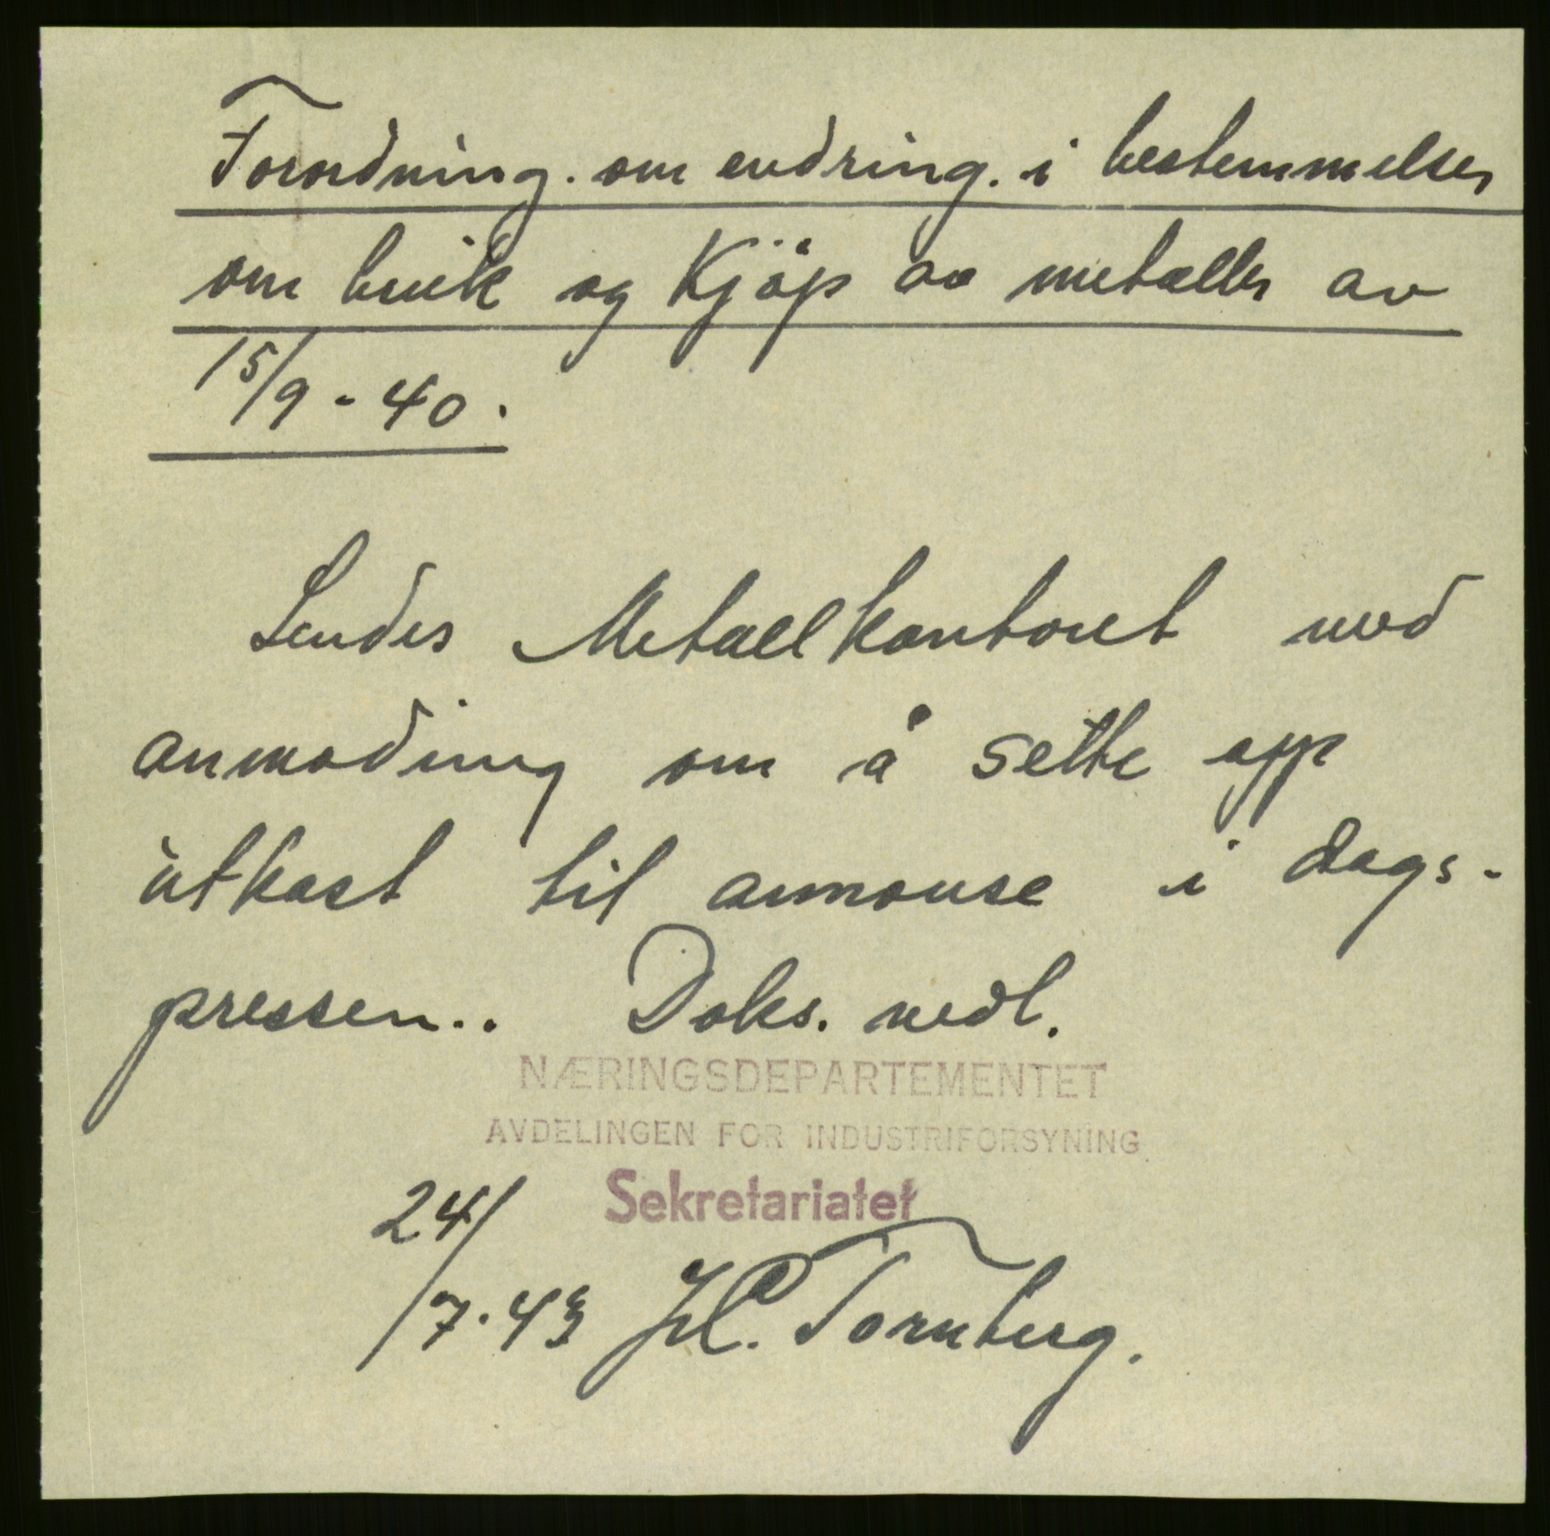 Forordning. om endring. i bestemmelser
om bruk og Kjöp av metaller av
15/9 - 40.
Sendes Metallkontoret med
anmoding om å sette opp
utkast til annonse i dags-
pressen.. Doks. vedl.
NÆRINGSDEPARTEMENTET
AVDELINGEN FOR INDUSTRIFORSYNING
Sekretariatet
24/
/7.43 Tornberg.